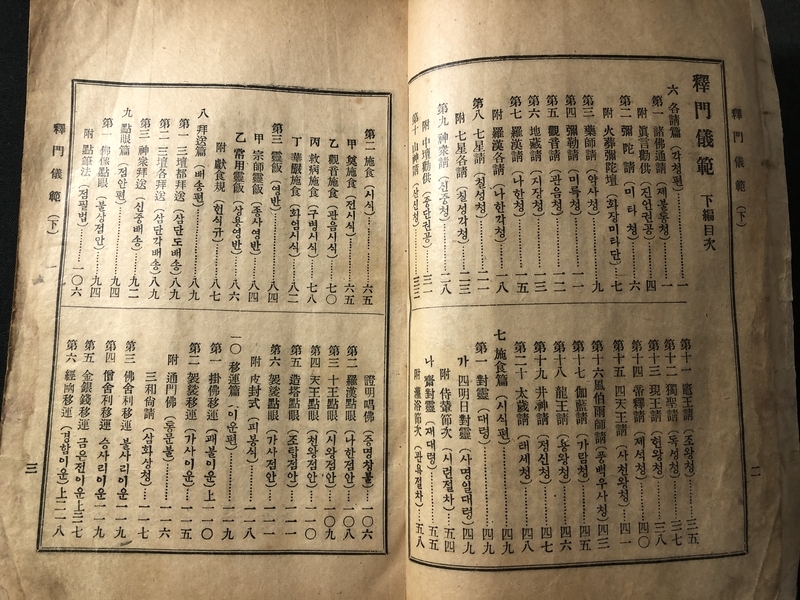 釋門儀範 (下)
釋門儀範 下編目次
六 各請篇 (각청편)……一
第一 諸佛通請 (제불통청)……一
附 眞言勸供 (진언권공)……四
第二 彌陀請 (미타청)……六
附 火葬彌陀壇 (화장미타단)……七
第三 藥師請 (약사청)……九
第四 彌勒請 (미륵청)……一一
第五 觀音請 (관음청)……一二
第六 地藏請 (지장청)……一三
第七 羅漢請 (나한청)……一五
附 羅漢各請 (나한각청)……一八
第八 七星請 (칠성청)……二一
附 七星各請 (칠성각청)……二三
第九 神衆請 (신중청)……二八
附 中壇勸供 (중단권공)……三一
第十 山神請 (산신청)……三三
第十一 竈王請 (조왕청)……三五
第十二 獨聖請 (독성청)……三七
第十三 現王請 (현왕청)……三八
第十四 帝釋請 (제석청)……四〇
第十五 四天王請 (사천왕청)……四一
第十六 風伯雨師請 (풍백우사청)……四三
第十七 伽藍請 (가람청)……四五
第十八 龍王請 (용왕청)……四六
第十九 井神請 (정신청)……四七
第二十 太歲請 (태세청)……四八
七 施食篇 (시식편)……四九
第一 對靈 (대령)……四九
가 四明日對靈 (사명일대령)……四九
附 侍輦節次 (시련절차)……五四
나 齋對靈 (재대령)……五五
附 灌浴節次 (관욕절차)……五八
二
第二 施食 (시식)……六五
甲 奠施食 (전시식)……六五
乙 觀音施食 (관음시식)……七〇
丙 救病施食 (구병시식)……七八
丁 華嚴施食 (화엄시식)……八二
第三 靈飯 (영반)……八四
甲 宗師靈飯 (종사영반)……八四
乙 常用靈飯 (상용영반)……八六
附 獻食規 (헌식규)……八七
八 拜送篇 (배송편)……八九
第一 三壇都拜送 (삼단도배송)……八九
第二 三壇各拜送 (삼단각배송)……八九
第三 神衆拜送 (신중배송)……九二
九 點眼篇 (점안편)……九四
第一 佛像點眼 (불상점안)……九四
附 點筆法 (점필법)……一〇六
證明唱佛 (증명창불)……一〇六
第二 羅漢點眼 (나한점안)……一〇八
第三 十王點眼 (시왕점안)……一〇九
第四 天王點眼 (천왕점안)……一一〇
第五 造塔點眼 (조탑점안)……一一一
第六 袈裟點眼 (가사점안)……一一一
附 皮封式 (피봉식)……一一八
一〇 移運篇 (이운편)……一一九
第一 掛佛移運 (괘불이운) 上一一〇
第二 袈裟移運 (가사이운)……一一五
附 通門佛 (통문불)……一一六
三和尙請 (삼화상청)……一一七
第三 佛舍利移運 (불사리이운)……一一九
第四 僧舍利移運 (승사리이운)……一一九
第五 金銀錢移運 (금은전이운)
第六 經凾移運 (경함이운) 上二一八
釋門儀範 (下)
三